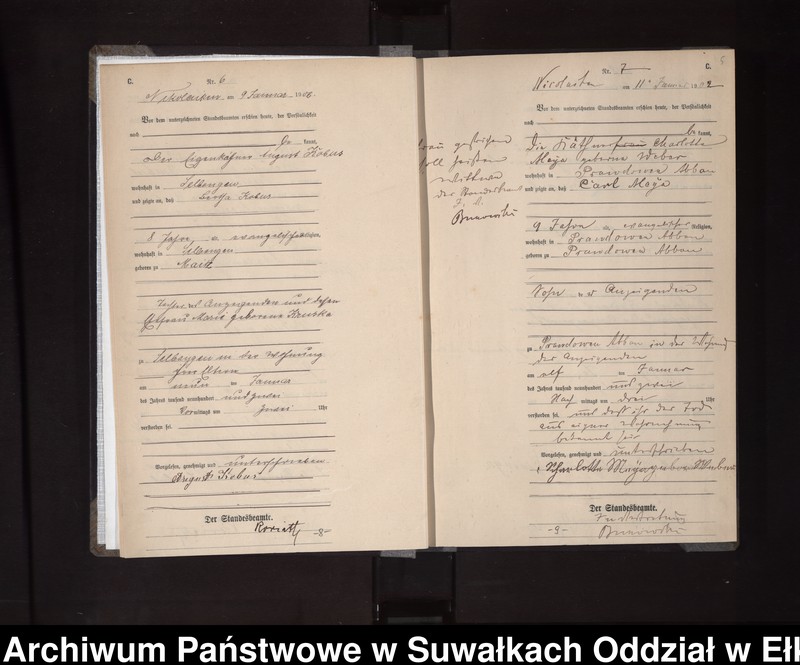 C. Nr. 6
Nikolaiken am 9 Januar 1902.
Vor dem unterzeichneten Standesbeamten erschien heute, der Persönlichkeit
nach
kannt,
der Eigenkäthner August Kobus
wohnhaft in Selbongen
und zeigte an, daß Bertha Kobus
8 Jahre evangelischer
wohnhaft in Selbongen
geboren zu
Tochter des Anzeigenden und dessen
Ehefrau Marie geborene
zu Selbongen in der Wohnung
am neun ten Januar
des Jahres tausend neunhundert und zwei
Vormittags um Uhr
verstorben sei.
Vorgelesen, genehmigt und unterschrieben
August Kobus
Der Standesbeamte.
-8-
5
Nr. 7 C.
Nicolaiken am 11. Januar 1902
Vor dem unterzeichneten Standesbeamten erschien heute, der Persönlichkeit
nach
be kannt,
Die Käthnerfrau Charlotte
geborene Weber
wohnhaft in Prawdowen Abbau
und zeigte an, daß Carl
9 Jahre evangelischer Religion,
wohnhaft in Prawdowen Abbau
geboren zu Prawdowen Abbau
Sohn der Anzeigenden
zu Prawdowen Abbau in der Wohnung
der Anzeigenden
am elf ten Januar
des Jahres tausend neunhundert und zwei
Nach mittags um drei Uhr
verstorben sei, und daß ihr der Tod
aus eigener Wissenschaft
bekannt sei
Vorgelesen, genehmigt und unterschrieben
Charlotte geborene Weber
Der Standesbeamte.
In Vertretung
-9-
frau gestrichen
soll heißen
Wittwe
der Standesbeamte
J. V.
Archiwum Państwowe w Suwałkach Oddział w Ełk